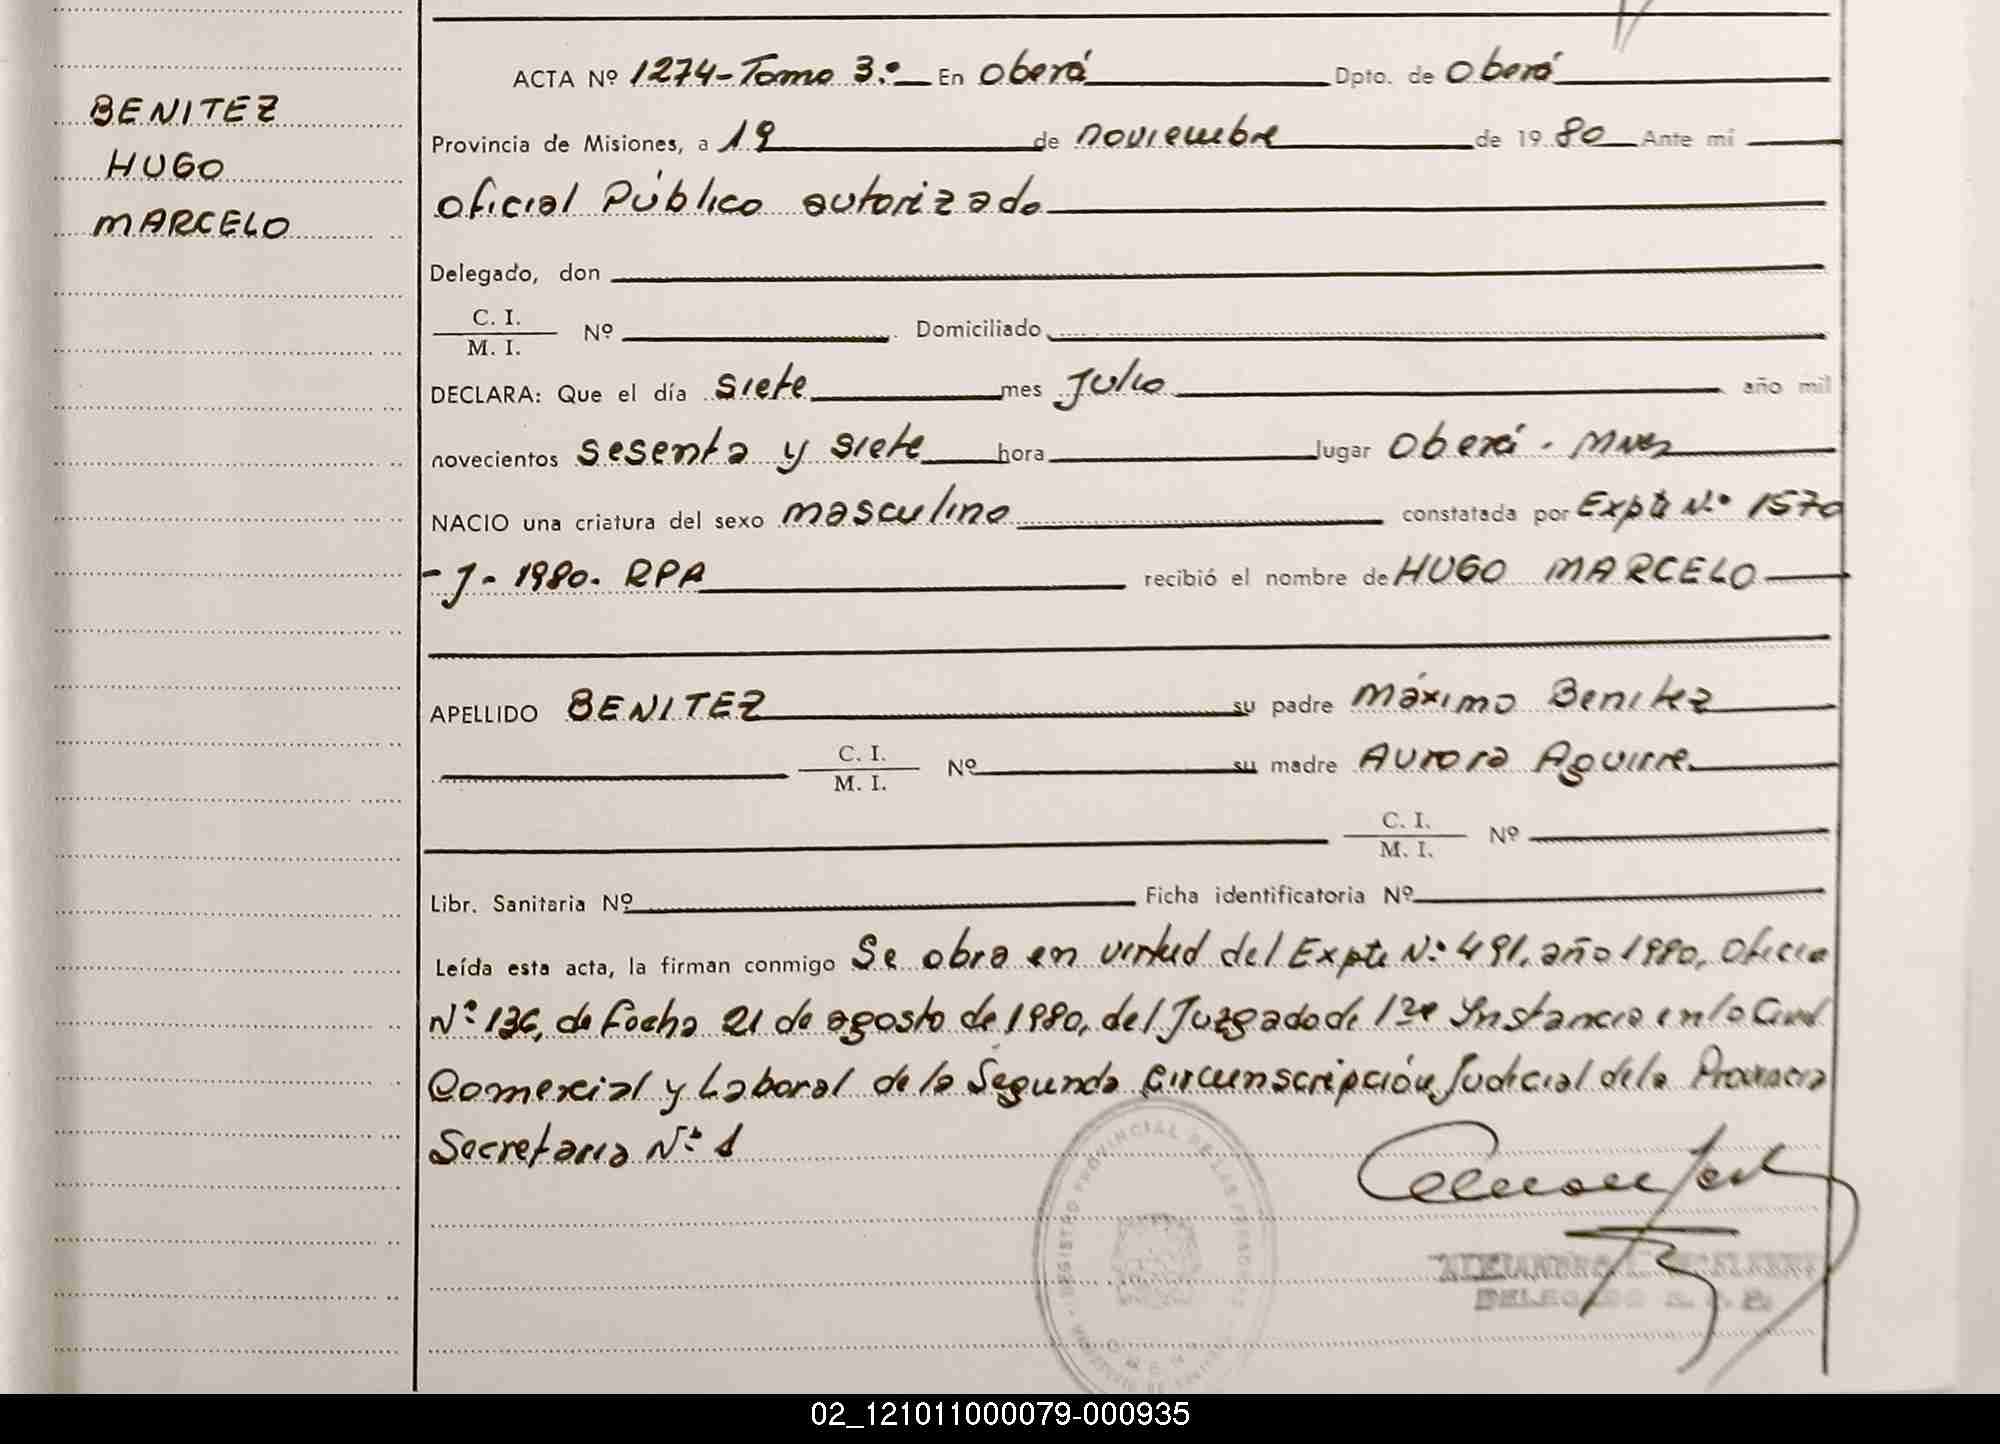 BENITEZ
HUGO
MARCELO
ACTA Nº 1274-Tomo 3.º En Oberá Dpto. de Oberá
Provincia de Misiones, a 19 de noviembre de 1980 Ante mí
oficial Público autorizado
Delegado, don
C. I.
M. I. Nº Domiciliado
DECLARA: Que el día siete mes Julio año mil
novecientos sesenta y siete hora lugar Oberá - Mnes
NACIO una criatura del sexo masculino constatada por Expte N.º 1570
- J - 1980. RPA recibió el nombre de HUGO MARCELO
APELLIDO BENITEZ su padre Máximo Benitez
C. I.
M. I. Nº su madre Aurora Aguirre
C. I.
M. I. Nº
Libr. Sanitaria Nº Ficha identificatoria Nº
Leída esta acta, la firman conmigo Se obra en virtud del Expte N.º 491, año 1980, Oficio
N.º 136, de fecha 21 de agosto de 1980, del Juzgado de 1ra Instancia en lo Civil
Comercial y Laboral de la Segunda Circunscripción Judicial de la Provincia
Secretaria N.º 1
REGISTRO PROVINCIAL DE LAS PERSONAS
DELEGADO
02_121011000079-000935